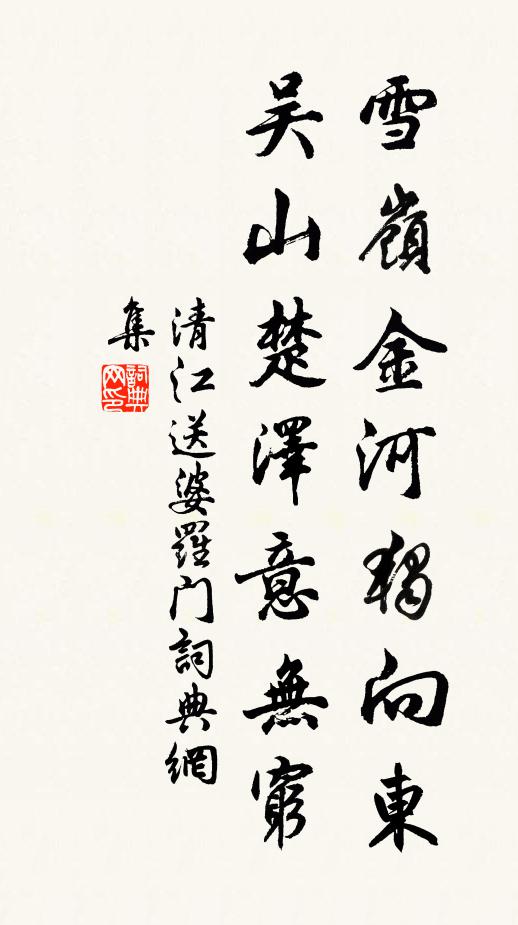 雪嶺金河獨向東
吴山楚澤意無窮
清江送婆羅門詞典網
集
詞典网印